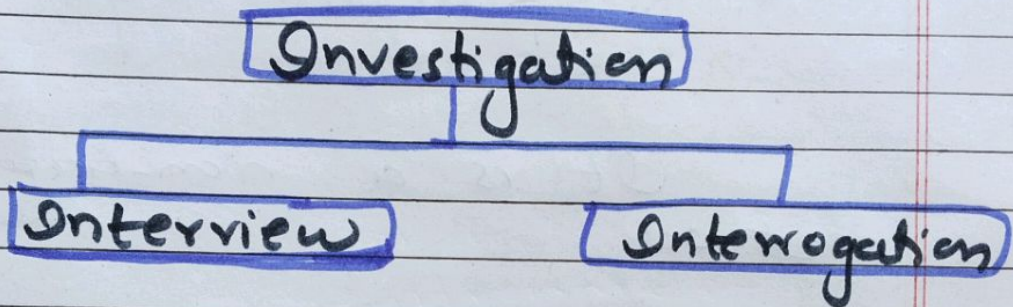 Investigation
Interview Interrogation